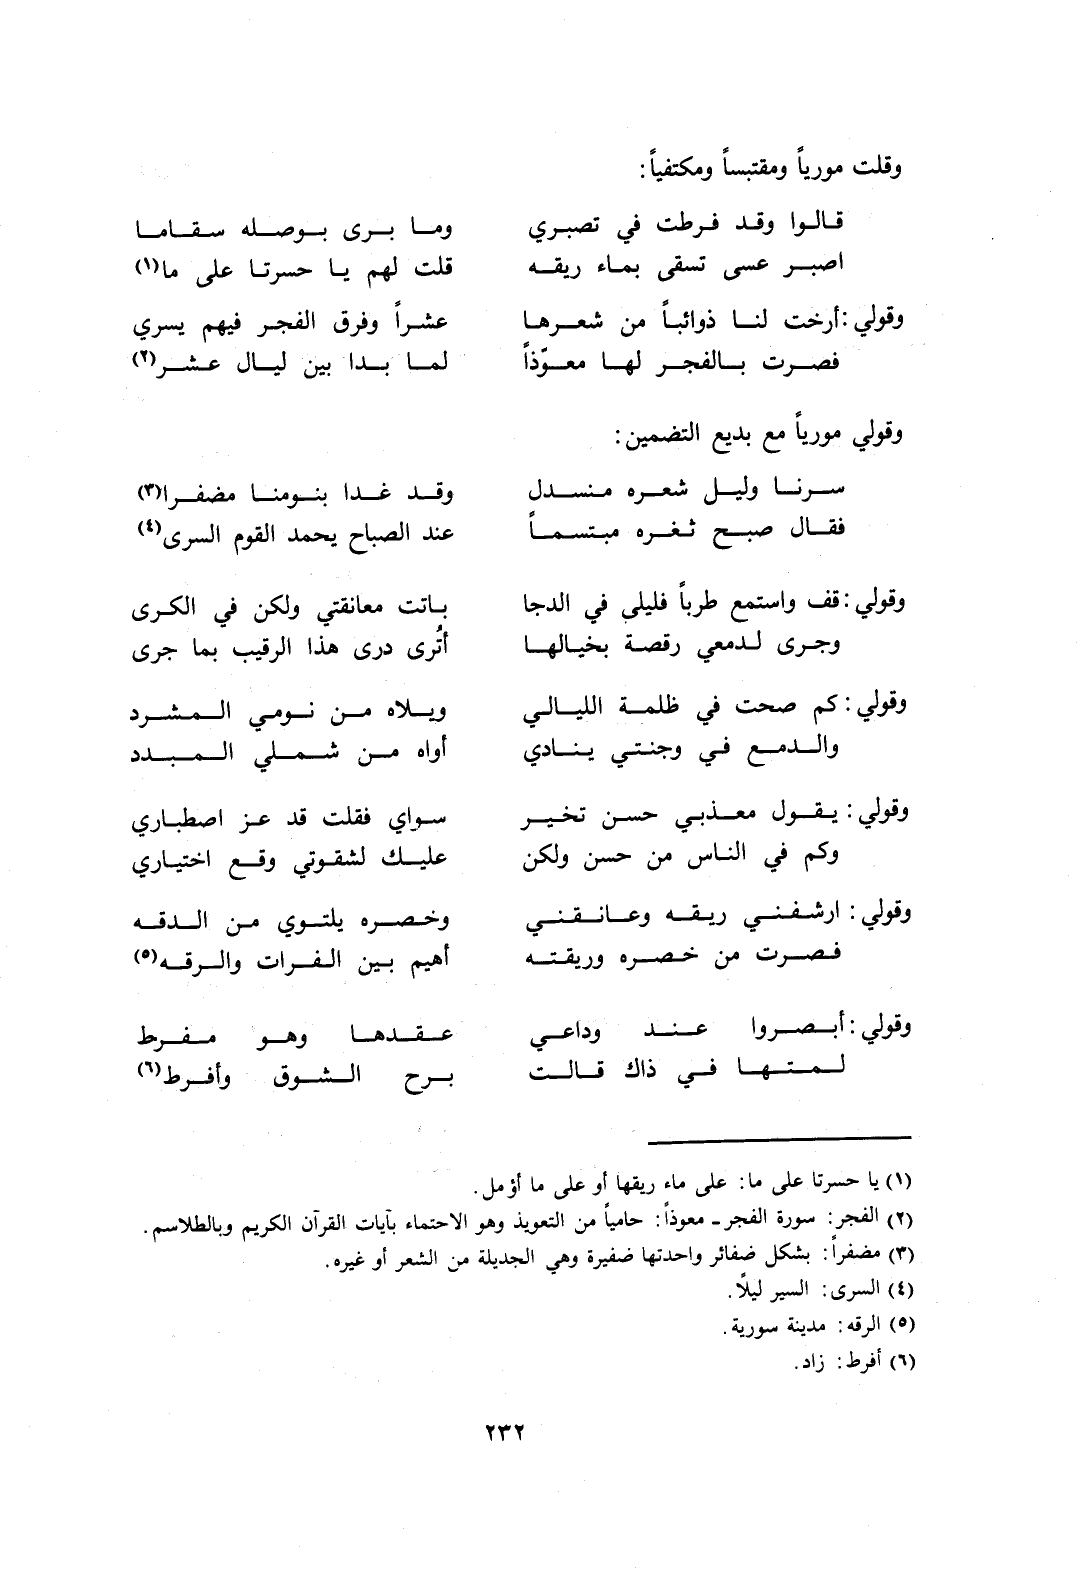 وقلت مورياً ومقتبساً ومكتفياً:
قالوا وقد فرطت في تصبري وما برى بوصله سقاما
اصبر عسى تسقى بماء ريقه قلت لهم يا حسرتا على ما(١)
وقولي: أرخت لنا ذوائباً من شعرها عشراً وفرق الفجر فيهم يسري
فصرت بالفجر لها معوّذاً لما بدا بين ليال عشر(٢)
وقولي مورياً مع بديع التضمين:
سرنا وليل شعره منسدل وقد غدا بنومنا مضفرا(٣)
فقال صبح ثغره مبتسماً عند الصباح يحمد القوم السرى(٤)
وقولي: قف واستمع طرباً فليلي في الدجا باتت معانقتي ولكن في الكرى
وجرى لدمعي رقصة بخيالها أتُرى درى هذا الرقيب بما جرى
وقولي: كم صحت في ظلمة الليالي ويلاه من نومي المشرد
والدمع في وجنتي ينادي أواه من شملي المبدد
وقولي: يقول معذبي حسن تخير سواي فقلت قد عز اصطباري
وكم في الناس من حسن ولكن عليك لشقوتي وقع اختياري
وقولي: ارشفني ريقه وعانقني وخصره يلتوي من الدقه
فصرت من خصره وريقته أهيم بين الفرات والرقه(٥)
وقولي: أبصروا عند وداعي عقدها وهو مفرط
لمتها في ذاك قالت برح الشوق وأفرط(٦)
(١) يا حسرتا على ما: على ماء ريقها أو على ما أؤمل.
(٢) الفجر: سورة الفجر ـ معوذاً: حامياً من التعويذ وهو الاحتماء بآيات القرآن الكريم وبالطلاسم.
(٣) مضفراً: بشكل ضفائر واحدتها ضفيرة وهي الجديلة من الشعر أو غيره.
(٤) السرى: السير ليلاً.
(٥) الرقه: مدينة سورية.
(٦) أفرط: زاد.
٢٣٢